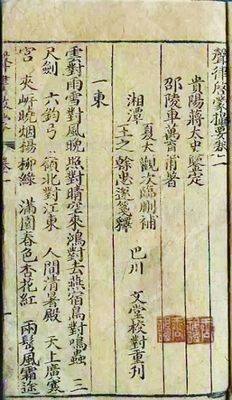 聲律啟蒙撮要卷一
貴陽蔣太史鑒定
邵陵車萬育甫著
湘潭
夏大觀次臨刪補
王之幹忠遂箋釋
巴川 文堂校對重刊
一東
雲對雨雪對風晚照對晴空來鴻對去燕宿鳥對鳴蟲三
尺劍 六鈞弓 嶺北對江東 人間清暑殿 天上廣寒
宮 夾岍曉烟楊柳綠 滿園春色杏花紅 兩鬂風霜途